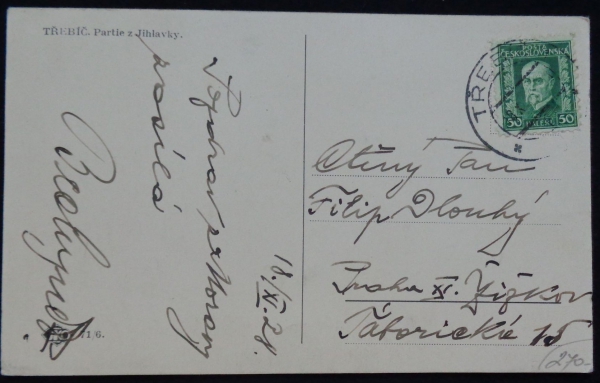 TŘEBÍČ. Partie z Jihlavky.
Pozdrav z Moravy
posílá
18./IX. 28.
POŠTA
ČESKOSLOVENSKÁ
50 50
TŘEB
Ctěný Pan
Filip Dlouhý
Praha XI. Žižkov
Táboritská 15
270-